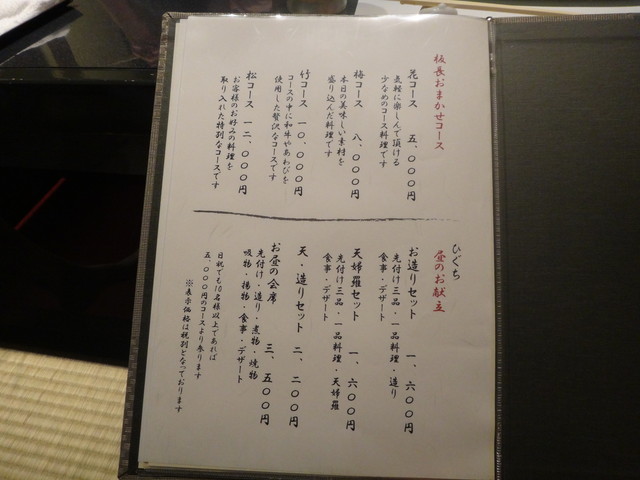 板長おまかせコース
花コース 五、〇〇〇円
気軽に楽しんで頂ける
少なめのコース料理です
梅コース 八、〇〇〇円
本日の美味しい素材を
盛り込んだ料理です
竹コース 一〇、〇〇〇円
コースの中に和牛やあわびを
使用した贅沢なコースです
松コース 一二、〇〇〇円
お客様のお好みの料理を
取り入れた特別なコースです
ひぐち
昼のお献立
お造りセット 一、六〇〇円
先付け三品・一品料理・造り
食事・デザート
天婦羅セット 一、六〇〇円
先付け三品・一品料理・天婦羅
食事・デザート
天・造りセット 二、二〇〇円
お昼の会席 三、五〇〇円
先付け・造り・煮物・焼物
吸物・揚物・食事・デザート
日祝でも10名様以上であれば
五、〇〇〇円のコースより承ります
※表示価格は税別となっております